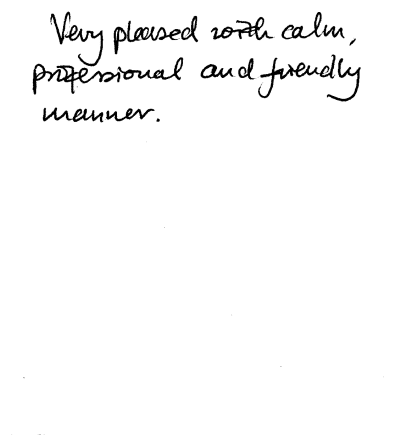 Very pleased with calm,
professional and friendly
manner.